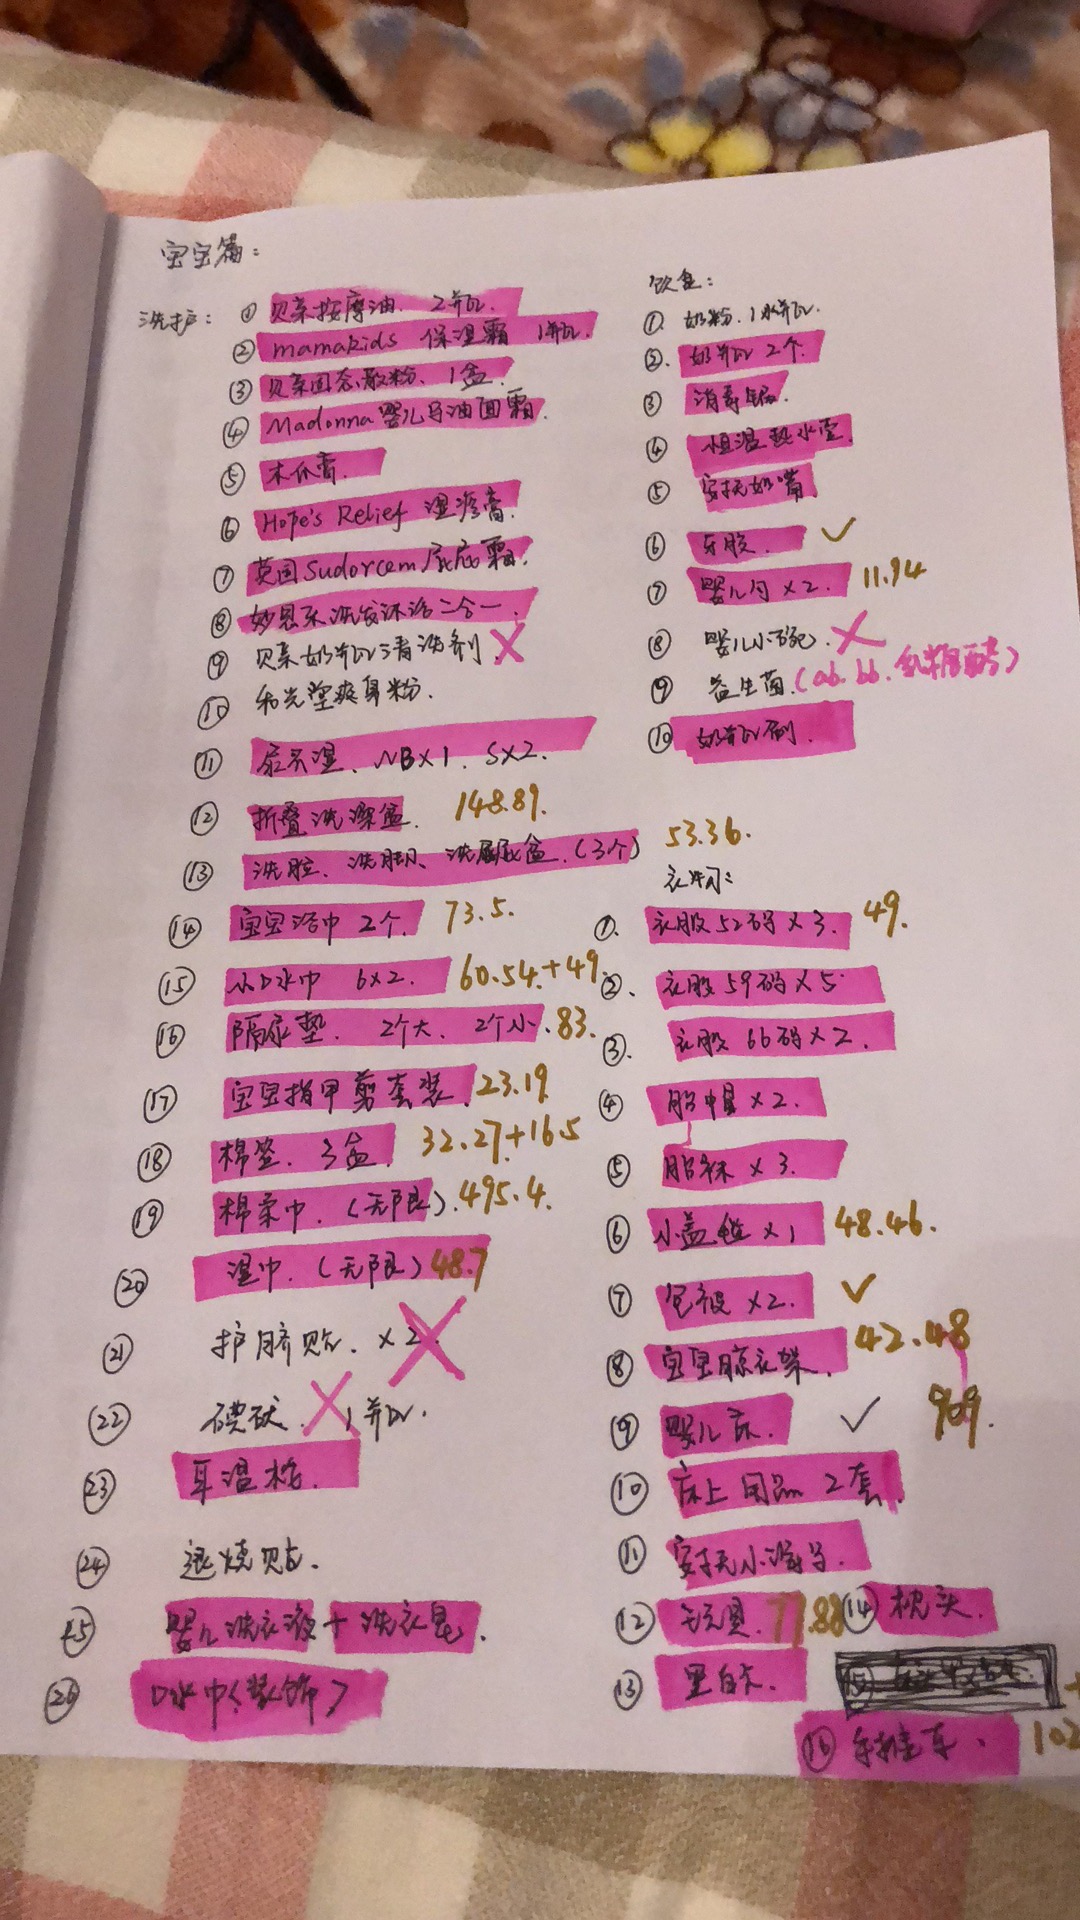 宝宝篇：
洗护：① 贝亲按摩油. 2瓶.
② mamakids 保湿霜 1瓶.
③ 贝亲固态散粉. 1盒.
④ Madonna 婴儿马油面霜.
⑤ 木瓜膏.
⑥ Hope's Relief 湿疹膏.
⑦ 英国Sudorcem屁屁霜.
⑧ 妙思乐洗发沐浴二合一.
⑨ 贝亲奶瓶清洗剂.
⑩ 和光堂爽身粉.
⑪ 尿不湿. NB×1. S×2.
⑫ 折叠洗澡盆. 148.89.
⑬ 洗脸、洗脚、洗屁屁盆.(3个) 53.36.
⑭ 宝宝浴巾 2个. 73.5.
⑮ 小口水巾 6×2. 60.54+49.
⑯ 隔尿垫. 2个大. 2个小. 83.
⑰ 宝宝指甲剪套装. 23.19
⑱ 棉签. 3盒. 32.27+16.5
⑲ 棉柔巾.(无限). 495.4.
⑳ 湿巾.(无限) 48.7
㉑ 护脐贴. ×2.
㉒ 碘伏. 1瓶.
㉓ 耳温枪.
㉔ 退烧贴.
25 婴儿洗衣液+洗衣皂.
㉖ 口水巾(装饰)
饮食：
① 奶粉. 1小瓶.
②. 奶瓶 2个.
③ 消毒锅.
④ 恒温热水壶.
⑤ 安抚奶嘴
⑥ 牙胶. ✓
⑦ 婴儿勺×2. 11.94
⑧ 婴儿小碗.
⑨ 益生菌.(ab. bb. 乳糖酶)
⑩ 奶瓶刷.
衣物：
①. 衣服52码×3. 49.
②. 衣服59码×5.
③. 衣服66码×2.
④ 胎帽×2.
⑤ 胎袜×3.
⑥ 小盖毯×1 48.46.
⑦ 包被×2. ✓
⑧ 宝宝晾衣架. 42.48
⑨ 婴儿床. ✓ 909.
⑩ 床上用品 2套.
⑪ 安抚小海马.
⑫ 玩具. 77.88 ⑭ 枕头.
⑬ 黑白卡. ⑮
⑯ 手推车. 102